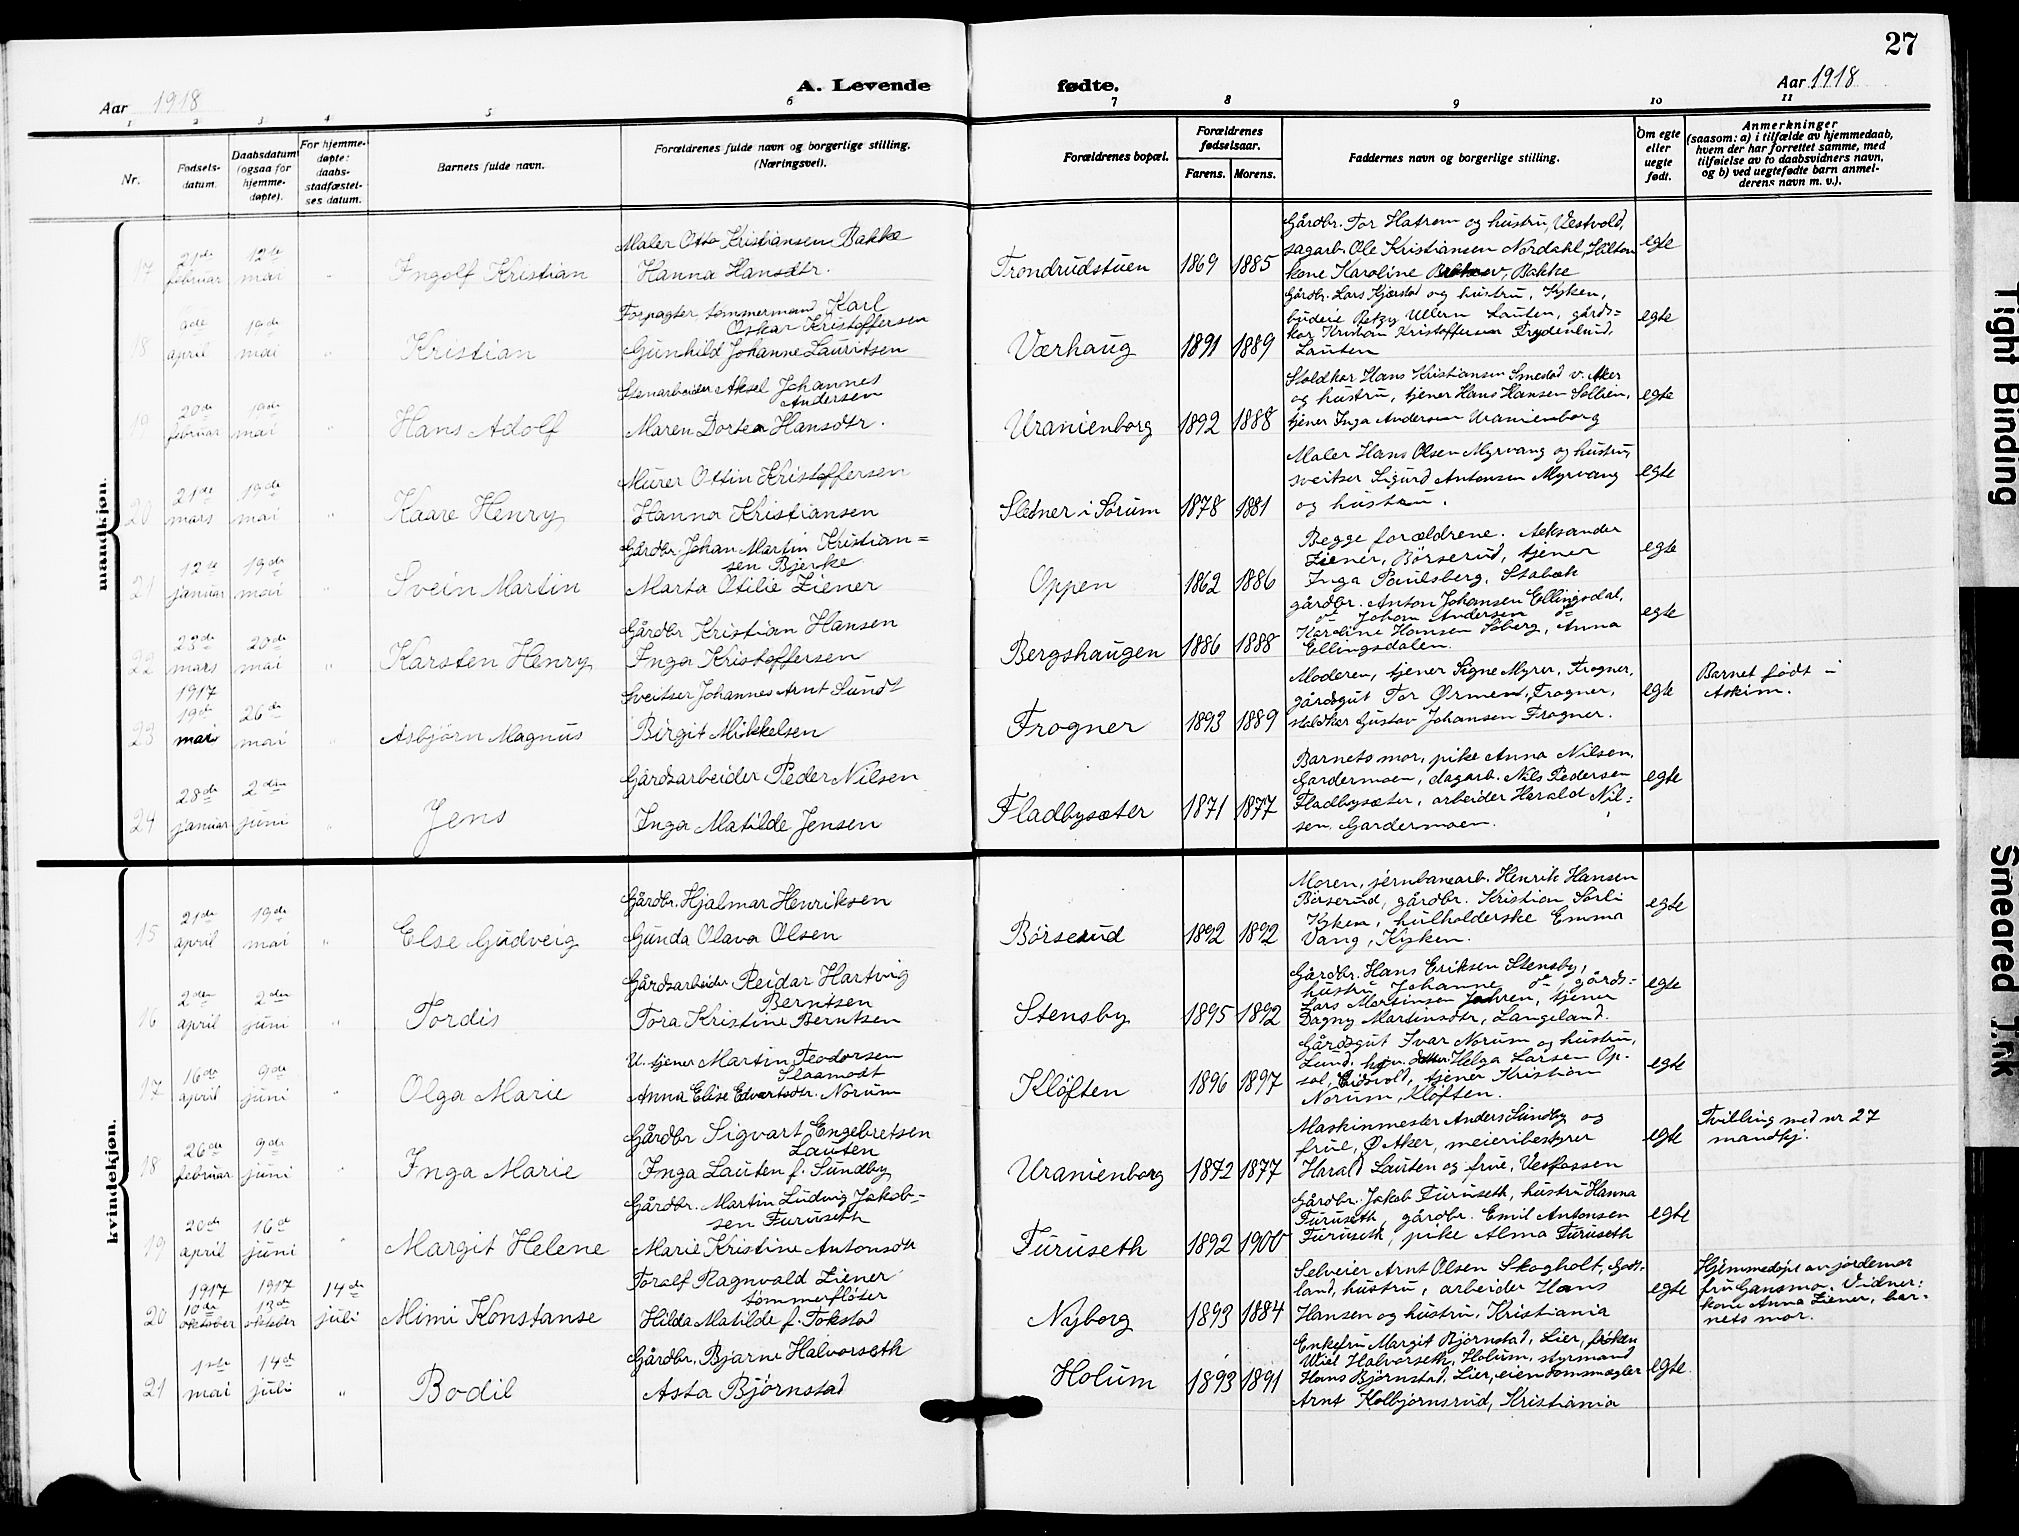 27
Aar 1918
A. Levende fødte.
Aar 1918
1 2 3 4 5 6 7 8 9 10 11
Nr.
Fødsels-
datum.
Daabsdatum
(ogsaa for
hjemme-
døpte).
For hjemme-
døpte:
daabs-
stadfæstel-
ses datum.
Barnets fulde navn.
Forældrenes fulde navn og borgerlige stilling.
(Næringsvei).
Forældrenes bopæl.
Forældrenes
fødselsaar.
Farens. Morens.
Faddernes navn og borgerlige stilling.
Om egte
eller
uegte
født.
Anmerkninger
(saasom: a) i tilfælde av hjemmedaab,
hvem der har forrettet samme, med
tilføielse av to daabsvidners navn,
og b) ved uegtefødte barn anmel-
derens navn m. v.).
mandkjøn.
17
21de
februar
12te
mai
"
Ingolf Kristian
Maler Otto Kristiansen Bakke
Hanna Hansdtr.
Trondrudstuen
1869 1885
Gårdbr. Tor Hatrem og hustru, Vestvold,
sagarb. Ole Kristiansen Nordahl, Hilton
kone Karoline Bakke
egte
18
april
19de
mai
"
Kristian
Forpagter, tømmermand Karl
Oskar Kristoffersen
Gunhild Johanne Lauritsen
Værhaug
1891 1889
Gårdbr. Lars Kjærstad og hustru, Kyken,
budeie Petzy Ullern Lauten, gårds-
kar Kristian Kristoffersen Frydenlund,
Lauten
egte
19
20de
februar
19de
mai
"
Hans Adolf
Stenarbeider Aksel Johannes
Andersen
Maren Dortea Hansdtr.
Uranienborg
1892 1888
Staldkar Hans Kristiansen Smestad v. Aker
og hustru, tjener Hans Hansen Sollien,
tjener Inga Andersen Uranienborg
egte
20
21de
mars
19de
mai
"
Kaare Henry
Murer Ottin Kristoffersen
Hanna Kristiansen
Sletner i Sørum
1878 1881
Maler Hans Olsen Myrvang og hustru,
sveitser Sigurd Antonsen Myrvang
og hustru.
egte
21
12te
januar
19de
mai
"
Svein Martin
Gårdbr. Johan Martin Kristian=
sen Bjerke
Marta Otilie Ziener
Oppen
1862 1886
Begge forældrene. Aleksander
Ziener, Børserud, tjener
Inga Paulsberg, Stabæk
egte
22
23de
mars
20de
mai
"
Karsten Henry
Gårdbr Kristian Hansen
Inga Kristoffersen
Bergshaugen
1886 1888
gårdbr. Anton Johansen Ellingsdal,
do Johan Andersen do
Karoline Hansen Søberg, Anna
Ellingsdalen.
egte
23
1917
19de
mars
26de
mai
"
Asbjørn Magnus
Sveitser Johannes Arnt Sundt
Birgit Mikkelsen
Frogner
1893 1889
Moderen, tjener Signe Myrer, Frogner,
gårdsgut Tor Ørmen, Frogner,
staldkar Gustav Johansen Frogner.
egte
Barnet født i
Askim.
24
28de
januar
2den
juni
"
Jens
Gårdsarbeider Peder Nilsen
Inga Matilde Jensen
Fladbysæter
1871 1877
Barnets mor, pike Anna Nilsen,
Gardermoen, dagarb. Nils Pedersen
Fladbysæter, arbeider Harald Nil-
sen, Gardermoen.
egte
kvindekjøn.
15
21de
april
19de
mai
"
Else Gudveig
Gårdbr. Hjalmar Henriksen
Gunda Olava Olsen
Børserud
1892 1892
Moren, jernbanearb. Henrik Hansen
Børserud, gårdbr. Kristian Sørli
Kyken, hulholderske Emma
Vang, Kyken.
egte
16
2den
april
2den
juni
"
Tordis
Gårdsarbeider Reidar Hartvig
Berntsen
Tora Kristine Berntsen
Stensby
1895 1892
Gårdbr. Hans Eriksen Stensby,
hustru Johanne do, gårds-
Lars Martinsen Jahren, tjener
Dagny Martinsdtr, Langeland.
egte
17
16de
april
9de
juni
"
Olga Marie
U. tjener Martin Teodorsen
Slaamodt
Anna Elise Edvartsdtr. Norum
Kløften
1896 1897
Gårdsgut Ivar Norum og hustru,
Lund, Helga Larsen Op-
sal, Eidsvold, tjener Kristian
Norum, Kløften.
egte
18
26de
februar
9de
juni
"
Inga Marie
Gårdbr Sigvart Engebretsen
Lauten
Inga Lauten f. Sundby
Uranienborg
1872 1877
Maskinmester Anders Sundby og
frue, Ø. Aker, meieribestyrer
Harald Lauten og frue, Vestfossen
egte
Tvilling med nr 27
mandkj.
19
20de
april
16de
juni
"
Margit Helene
Gårdbr. Martin Ludvig Jakob-
sen Furuseth
Marie Kristine Antonsdtr
Furuseth
1892 1900
Gårdbr. Jakob Furuseth, hustru Hanna
Furuseth, gårdbr. Emil Antonsen
Furuseth, pike Alma Furuseth
egte
20
1917
10de
oktober
1917
13de
oktober
14de
juli
Mimi Konstanse
Toralf Ragnvald Ziener
tømmerfløter
Hilda Matilde f. Tokstad
Nyborg
1893 1884
Selveier Arnt Olsen Skogholt, Gott-
land, hustru, arbeider Hans
Hansen og hustru, Kristiania
egte
Hjemmedøpt av jordemor
fru Gansmo. Vidner:
kone Anna Ziener, bar-
nets mor.
21
1ste
mai
14de
juli
"
Bodil
Gårdbr. Bjarne Halvorseth
Asta Bjørnstad
Holum
1893 1891
Enkefru Margit Bjørnstad, Lier, frøken
Halvorseth, Holum, styrmand
Hans Bjørnstad, Lier, eiendomsmægler
Arnt Kolbjørnsrud, Kristiania
egte
Tight Binding
Smeared Ink